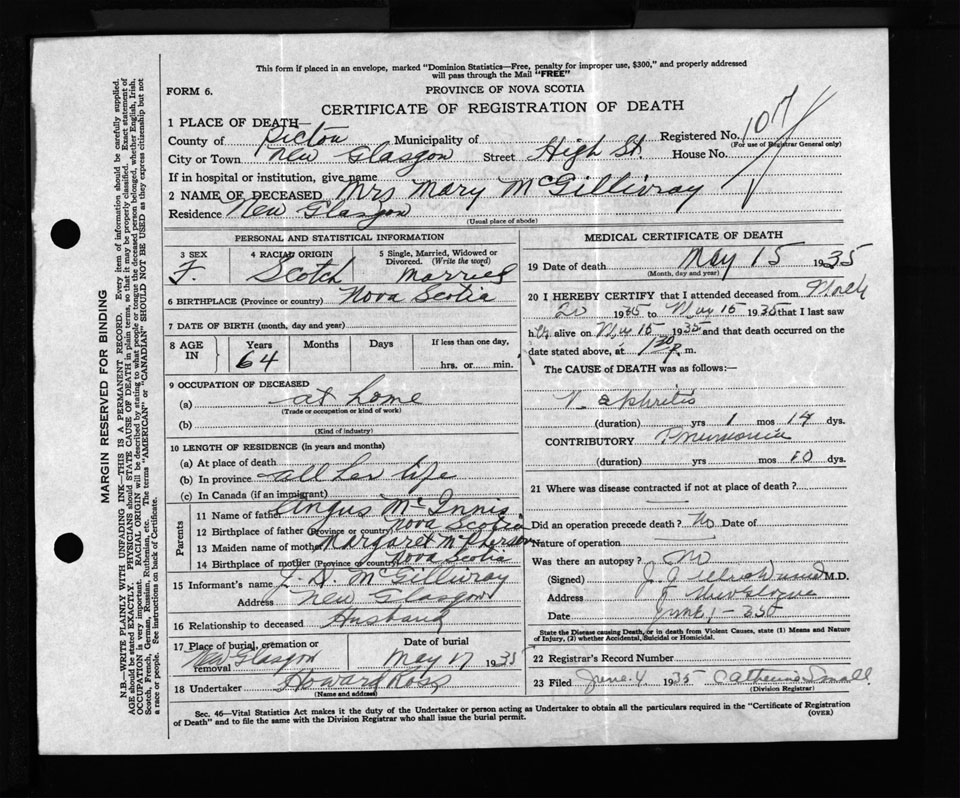 This form if placed in an envelope, marked "Dominion Statistics—Free, penalty for improper use, $300," and properly addressed
will pass through the Mail "FREE"
FORM 6.
PROVINCE OF NOVA SCOTIA
CERTIFICATE OF REGISTRATION OF DEATH
1 PLACE OF DEATH—
County of Pictou Municipality of Registered No. 107
(For use of Registrar General only)
City or Town New Glasgow Street High St. House No.
If in hospital or institution, give name
2 NAME OF DECEASED Mrs Mary McGillivray
Residence New Glasgow
(Usual place of abode)
PERSONAL AND STATISTICAL INFORMATION
3 SEX 4 RACIAL ORIGIN 5 Single, Married, Widowed or Divorced. (Write the word)
F. Scotch Married
6 BIRTHPLACE (Province or country) Nova Scotia
7 DATE OF BIRTH (month, day and year)
8 AGE IN Years Months Days If less than one day,
64 hrs. or min.
9 OCCUPATION OF DECEASED
(a) at home
(Trade or occupation or kind of work)
(b)
(Kind of industry)
10 LENGTH OF RESIDENCE (in years and months)
(a) At place of death
(b) In province all her life
(c) In Canada (if an immigrant)
Parents
11 Name of father Angus McInnis
12 Birthplace of father (Province or country) Nova Scotia
13 Maiden name of mother Margaret McPherson
14 Birthplace of mother (Province or country) Nova Scotia
15 Informant's name J. D. McGillivray
Address New Glasgow
16 Relationship to deceased Husband
17 Place of burial, cremation or removal Date of burial
New Glasgow May 17 1935
18 Undertaker Howard Ross
(Name and address)
MEDICAL CERTIFICATE OF DEATH
19 Date of death May 15 1935
(Month, day and year)
20 I HEREBY CERTIFY that I attended deceased from
20 1935 to May 15 1935 that I last saw
her alive on May 15 1935 and that death occurred on the
date stated above, at 1 30 P. m.
The CAUSE of DEATH was as follows:—
Nephritis
(duration) yrs 1 mos 14 dys.
CONTRIBUTORY Pneumonia
(duration) yrs mos 10 dys.
21 Where was disease contracted if not at place of death?
Did an operation precede death? No Date of
Nature of operation
Was there an autopsy? No
(Signed) M.D.
Address
Date June 1 - 35
State the Disease causing Death, or in death from Violent Causes, state (1) Means and Nature
of Injury, (2) whether Accidental, Suicidal or Homicidal.
22 Registrar's Record Number
23 Filed June 4 1935 Catherine Small
(Division Registrar)
Sec. 46—Vital Statistics Act makes it the duty of the Undertaker or person acting as Undertaker to obtain all the particulars required in the "Certificate of Registration
of Death" and to file the same with the Division Registrar who shall issue the burial permit.
(OVER)
MARGIN RESERVED FOR BINDING
N.B.—WRITE PLAINLY WITH UNFADING INK—THIS IS A PERMANENT RECORD. Every item of information should be carefully supplied.
AGE should be stated EXACTLY. PHYSICIANS should STATE CAUSE OF DEATH in plain terms, so that it may be properly classified. Exact statement of
OCCUPATION is very important. RACIAL ORIGIN will be described by stating to what people or tongue the deceased person belonged, whether English, Irish,
Scotch, French, German, Russian, Ruthenian, etc. The terms "AMERICAN" or "CANADIAN" SHOULD NOT BE USED as they express citizenship but not
a race or people. See instructions on back of Certificate.